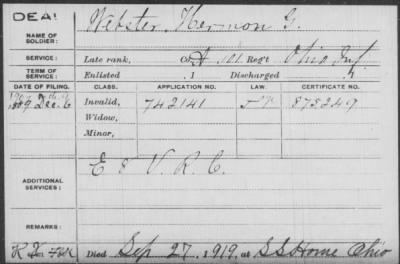 DEAD
Webster, Hermon G.
NAME OF
SOLDIER:
SERVICE: Late rank, Co. A, 101 Reg't Ohio Inf
TERM OF
SERVICE: Enlisted , 1 Discharged , 1
DATE OF FILING. CLASS. APPLICATION NO. LAW. CERTIFICATE NO.
1889 Dec. 6 Invalid, 742141 873249
Widow,
Minor,
ADDITIONAL
SERVICES: E & V. R. C.
REMARKS:
Died Sep 27, 1919, at S S Home Ohio